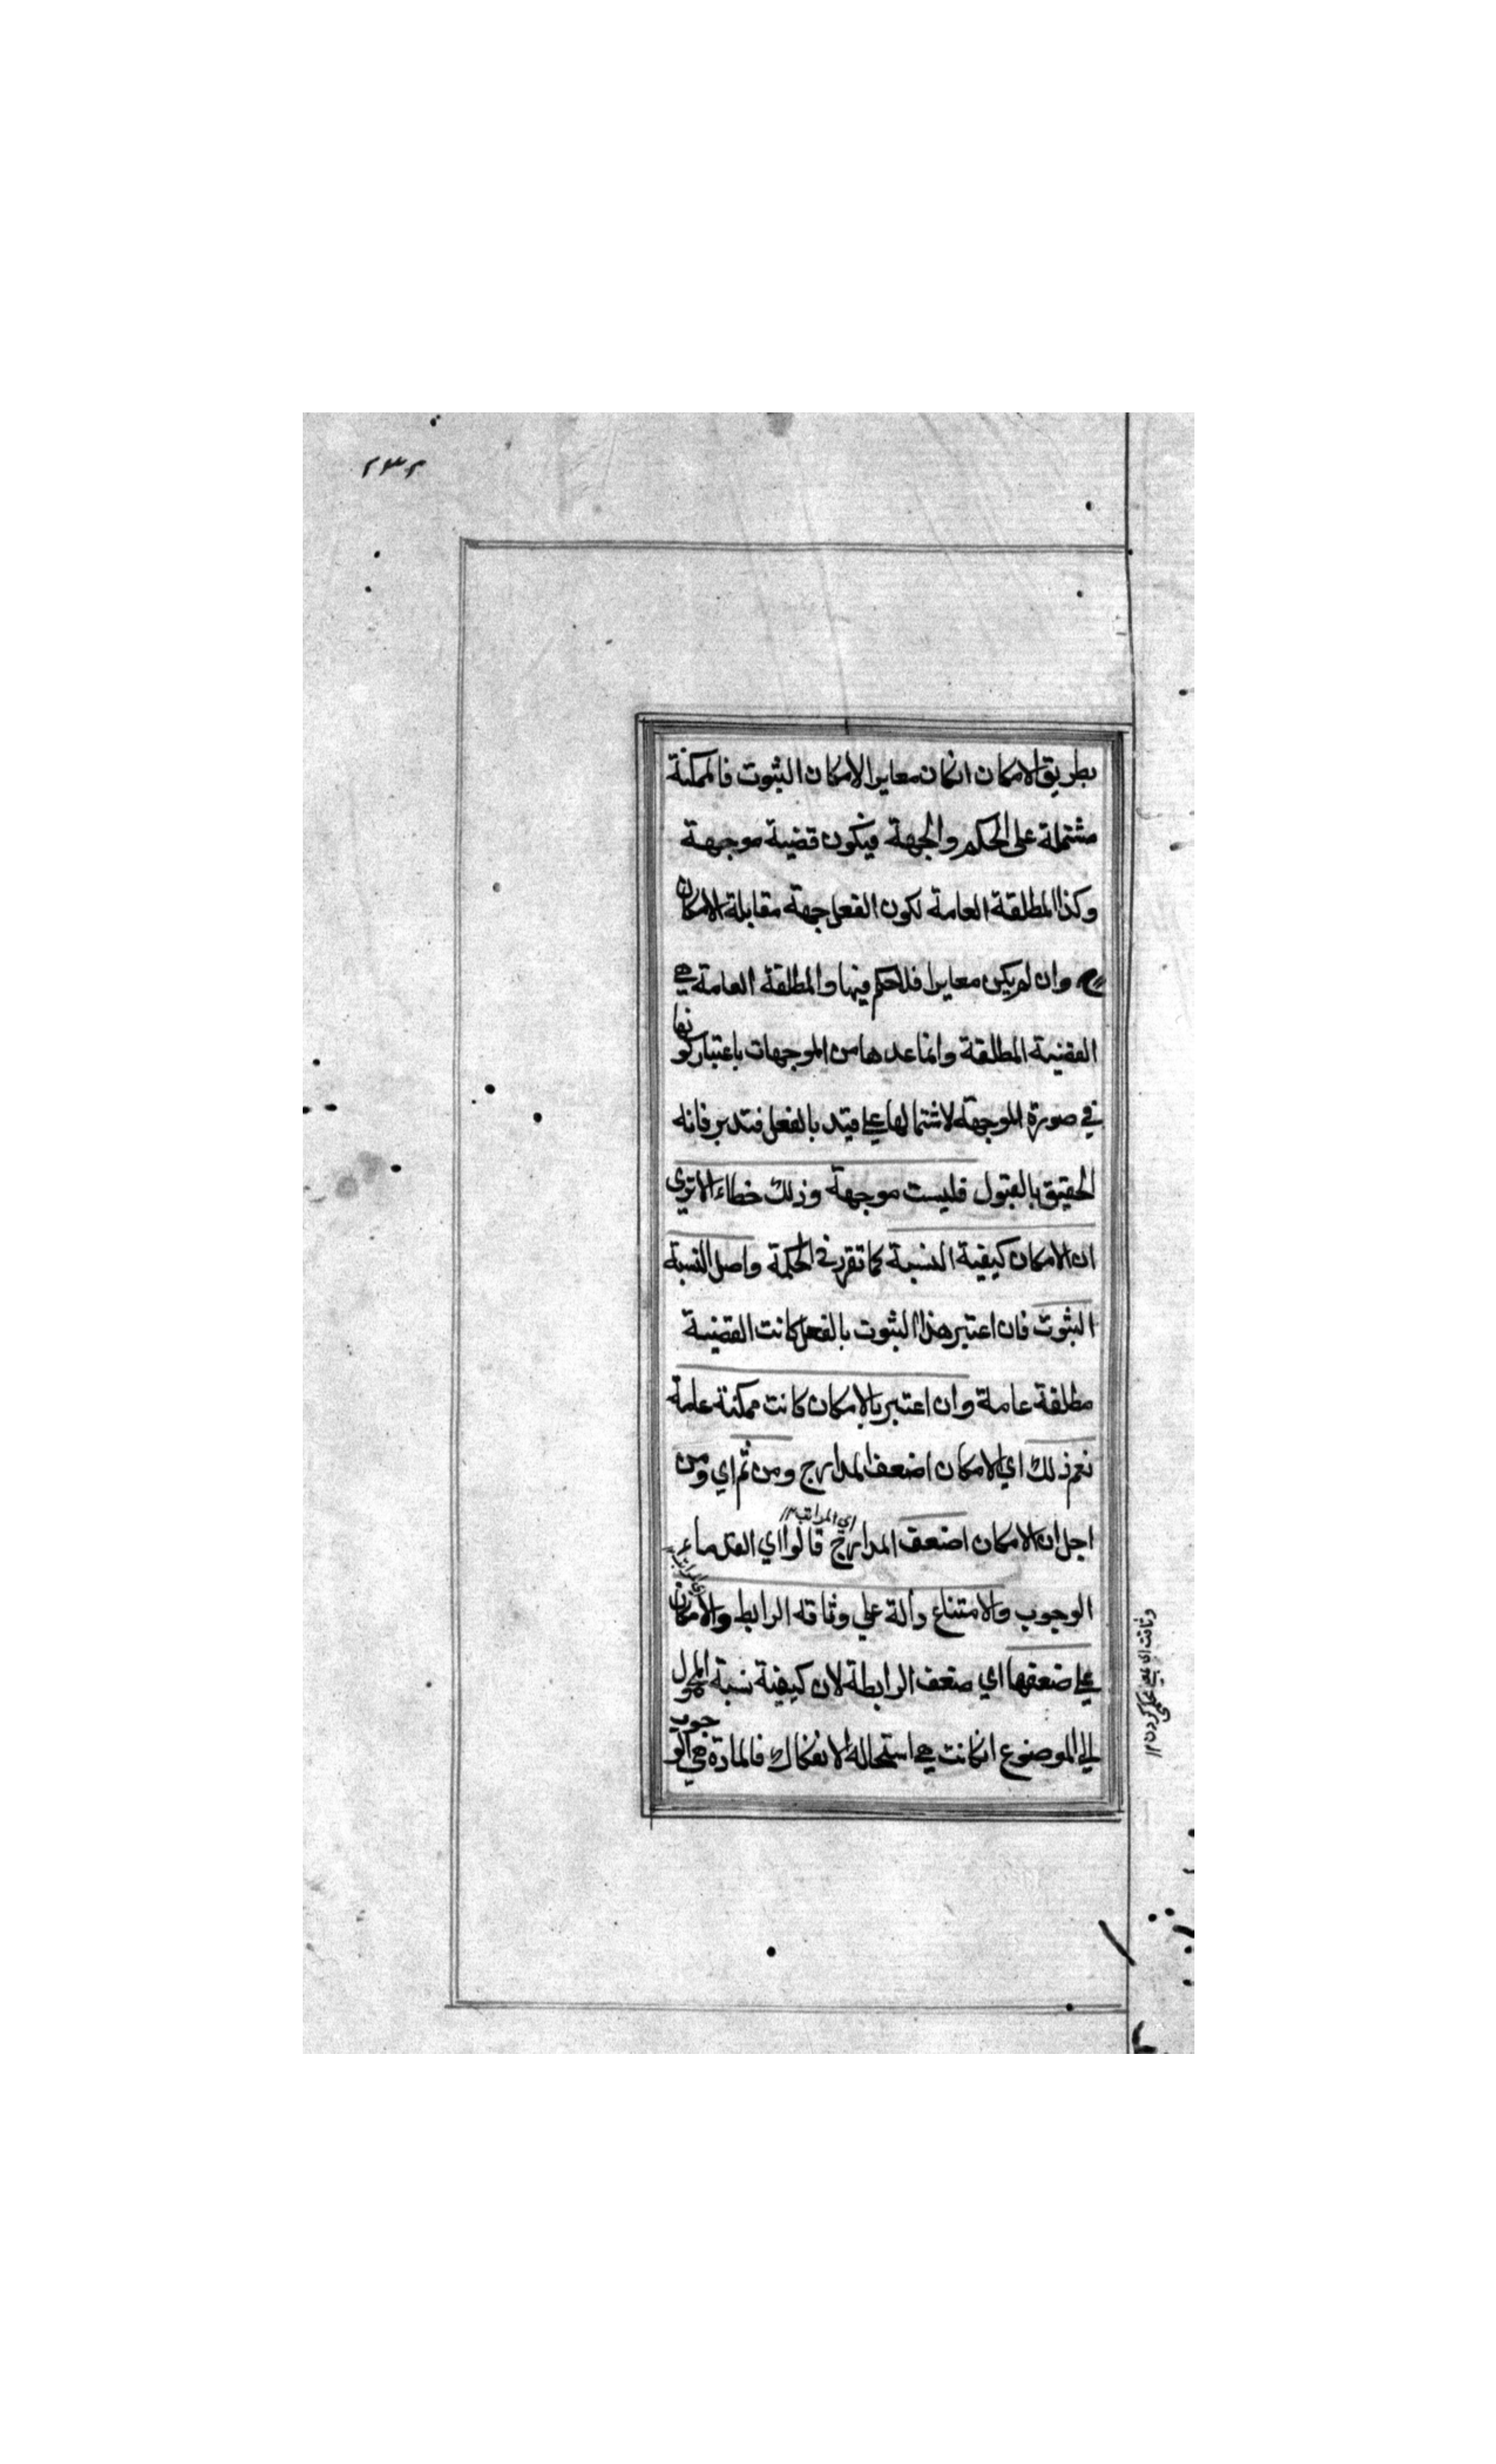 ٢٣٢
بطريق الامكان انكان معايرا لامكان الثبوت فالممكنة
مشتملة على الحكم والجهة فيكون قضية موجهة
وكذا المطلقة العامة لكون الفعل جهة مقابلة الامكان
وان لم يكن معايرا فلا حكم فيها والمطلقة العامة هي
القضية المطلقة وانما عدها من الموجهات باعتبار كونها
في صورة الموجهة لاشتمالها على قيد بالفعل فتدبر فانه
الحقيق بالقبول فليست موجهة وذلك خطاء الا ترى
ان الامكان كيفية النسبة كما تقرر في الحكمة واصل النسبة
الثبوت فان اعتبر هذا الثبوت بالفعل كانت القضية
مطلقة عامة وان اعتبر بالامكان كانت ممكنة عامة
نعم ذلك اي الامكان اضعف المدارج ومن ثم اي ومن
اجل ان الامكان اضعف المدارج قالوا اي القدماء
اي المراتب ١٢
الوجوب والامتناع دالة على وثاقه الرابط والامكان
على ضعفها اي ضعف الرابطة لان كيفية نسبة المحمول
الى الموضوع انكانت هي استحالة الانفكاك فالمادة هي الوجوب